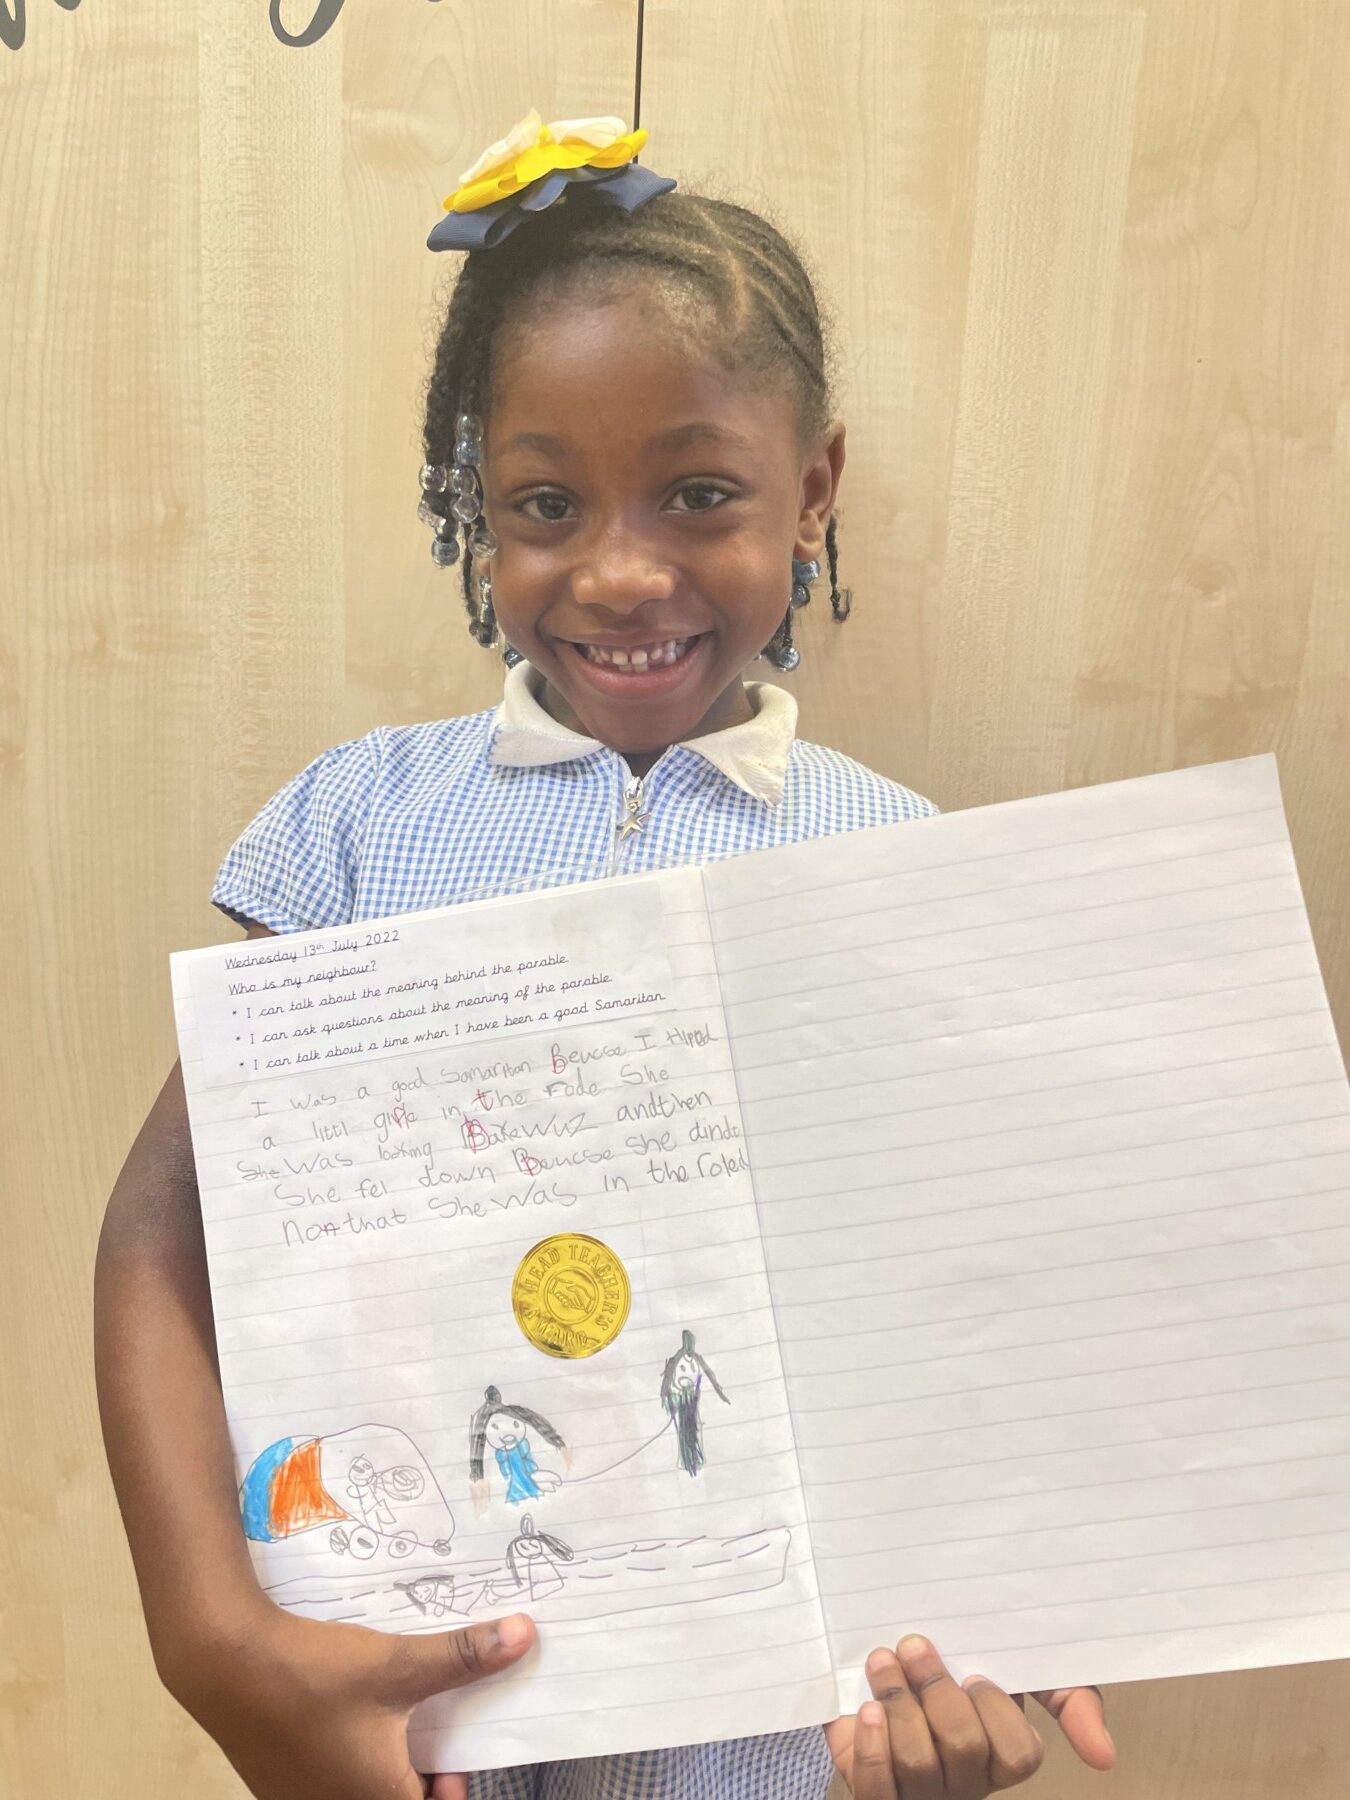 Wednesday 13th July 2022
Who is my neighbour?
* I can talk about the meaning behind the parable.
* I can ask questions about the meaning of the parable.
* I can talk about a time when I have been a good Samaritan.
I was a good Samaritan Beucse I
a littl girl in the rode She
She Was looking BakeWuZ andthen
She fel down Beucse she dindt
that She Was in the
HEAD TEACHER'S
AWARD